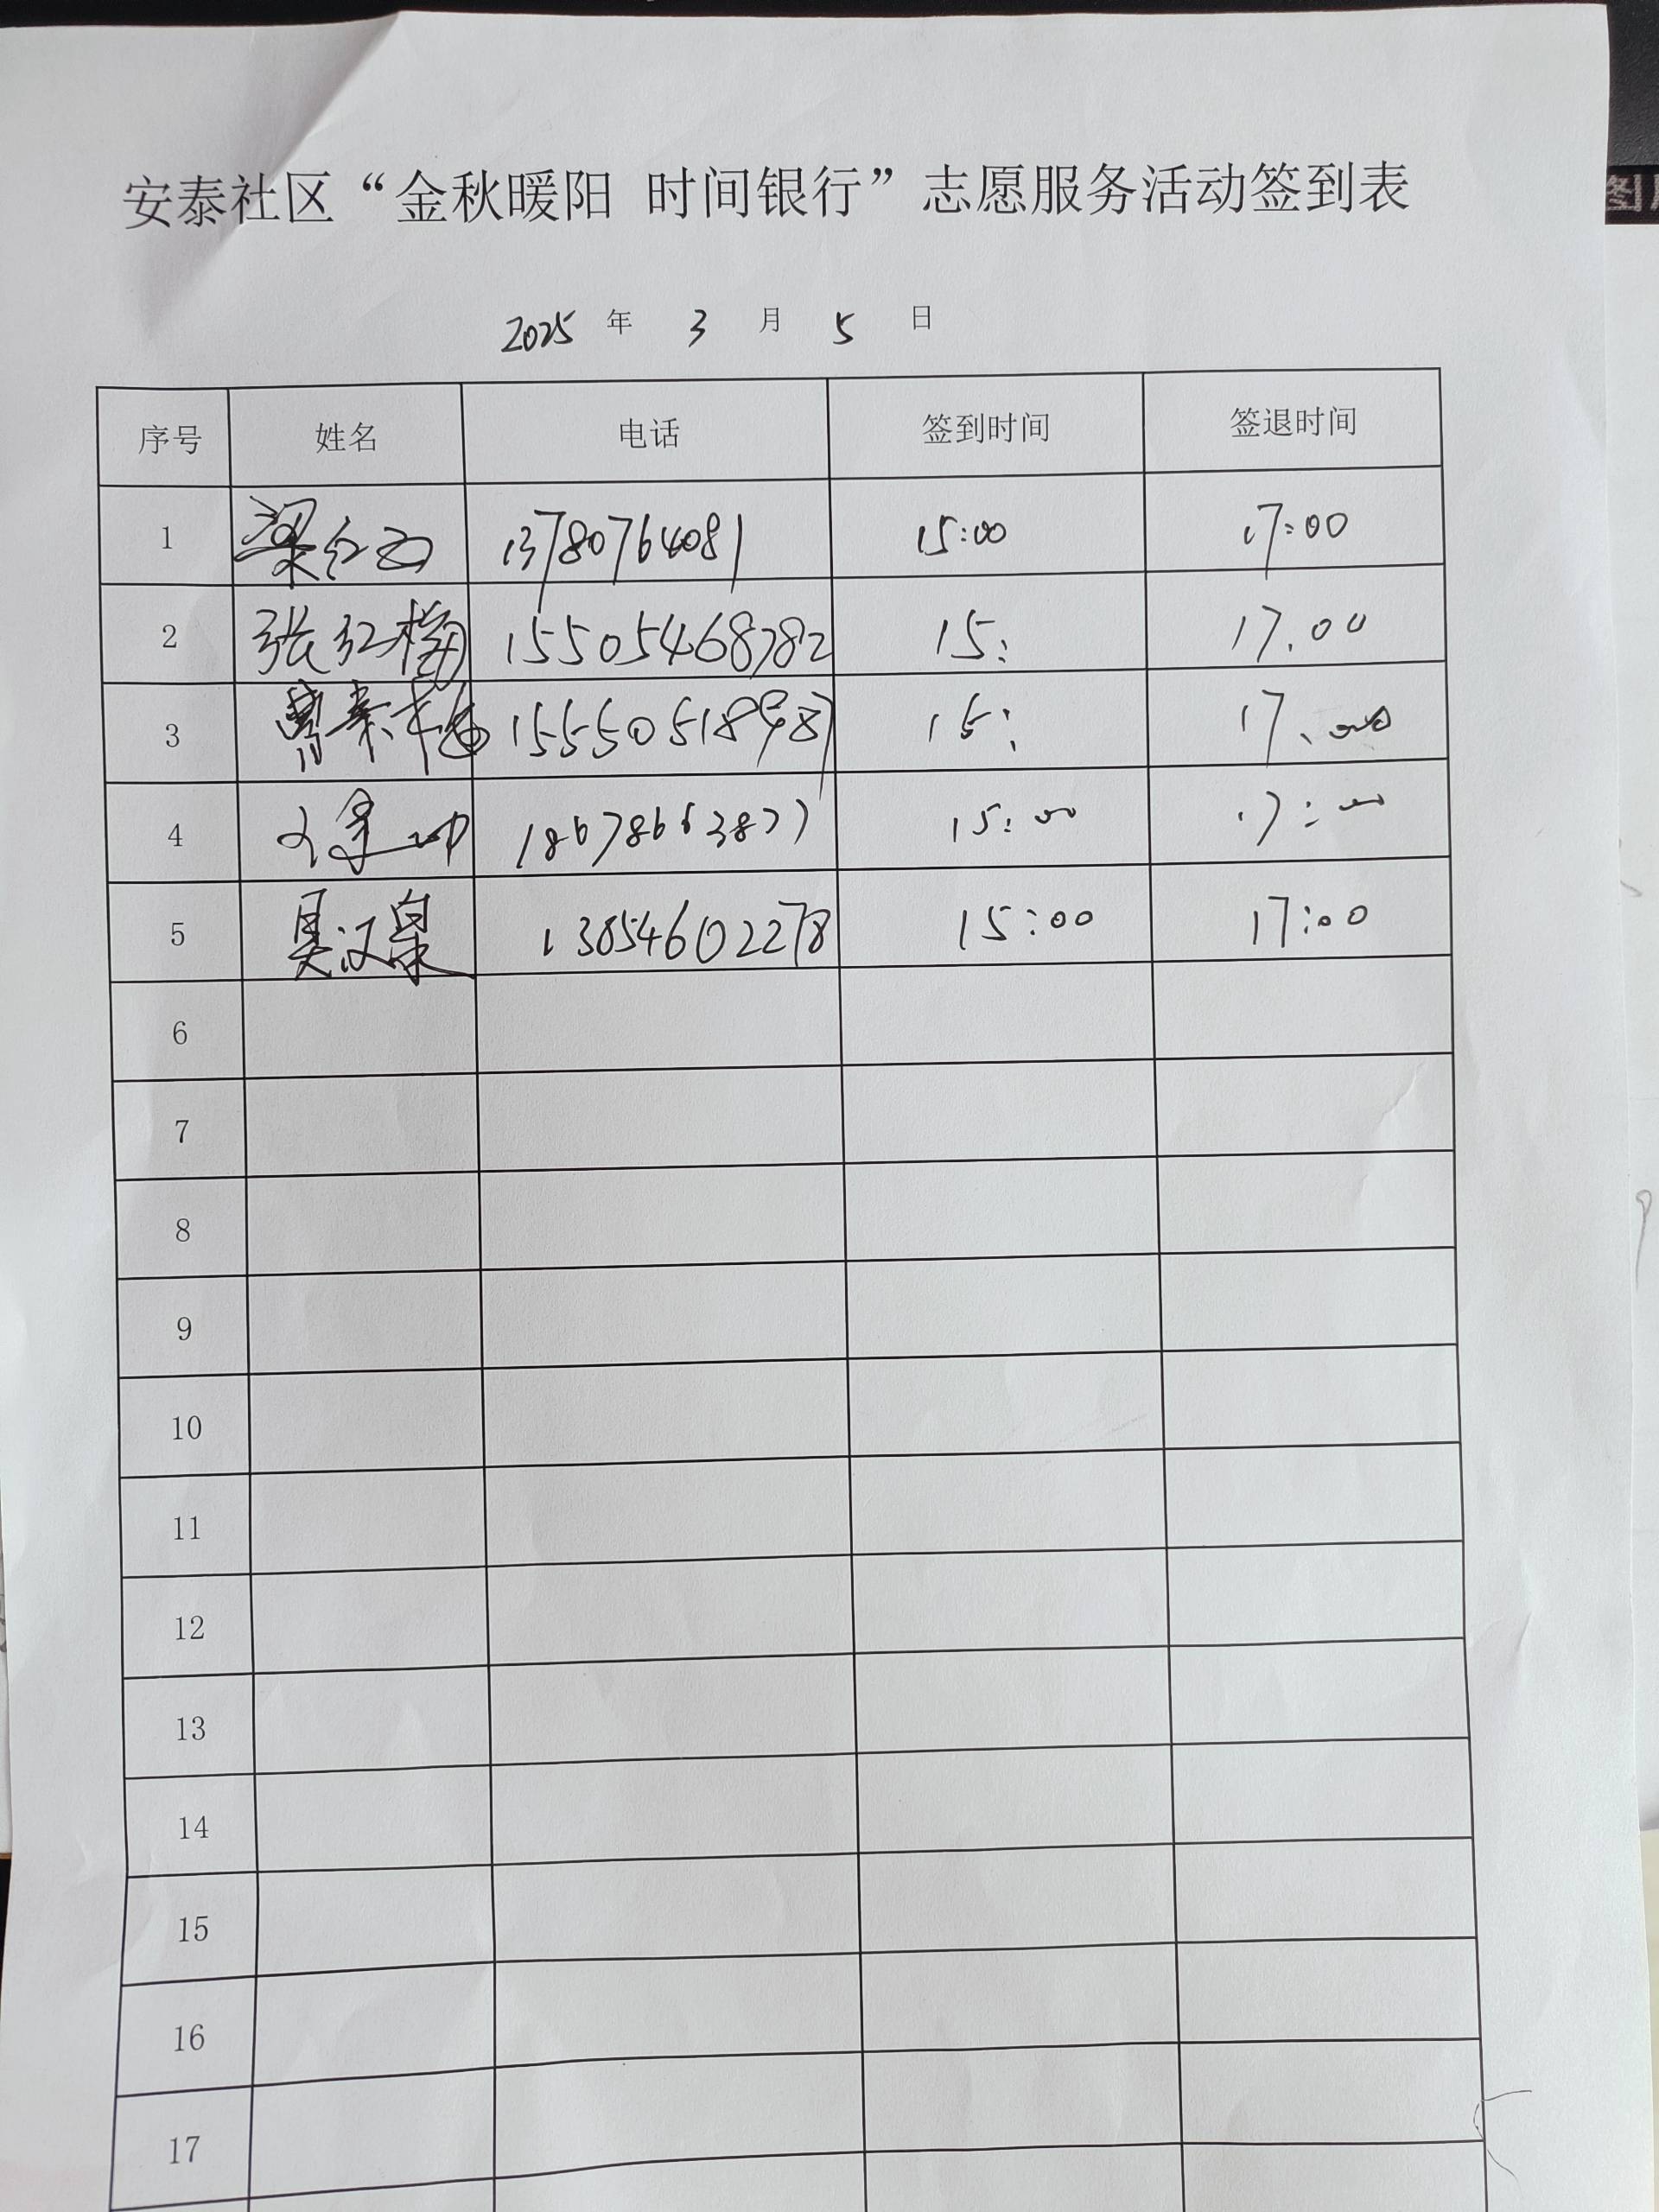 安泰社区“金秋暖阳 时间银行”志愿服务活动签到表
2025 年 3 月 5 日
序号 姓名 电话 签到时间 签退时间
1 梁红 13780764081 15:00 17:00
2 张红梅 15505468782 15: 17.00
3 曹秉 15550518987 15: 17.00
4 18678663877 15:00 17:00
5 吴汉泉 13854602278 15:00 17:00
6
7
8
9
10
11
12
13
14
15
16
17